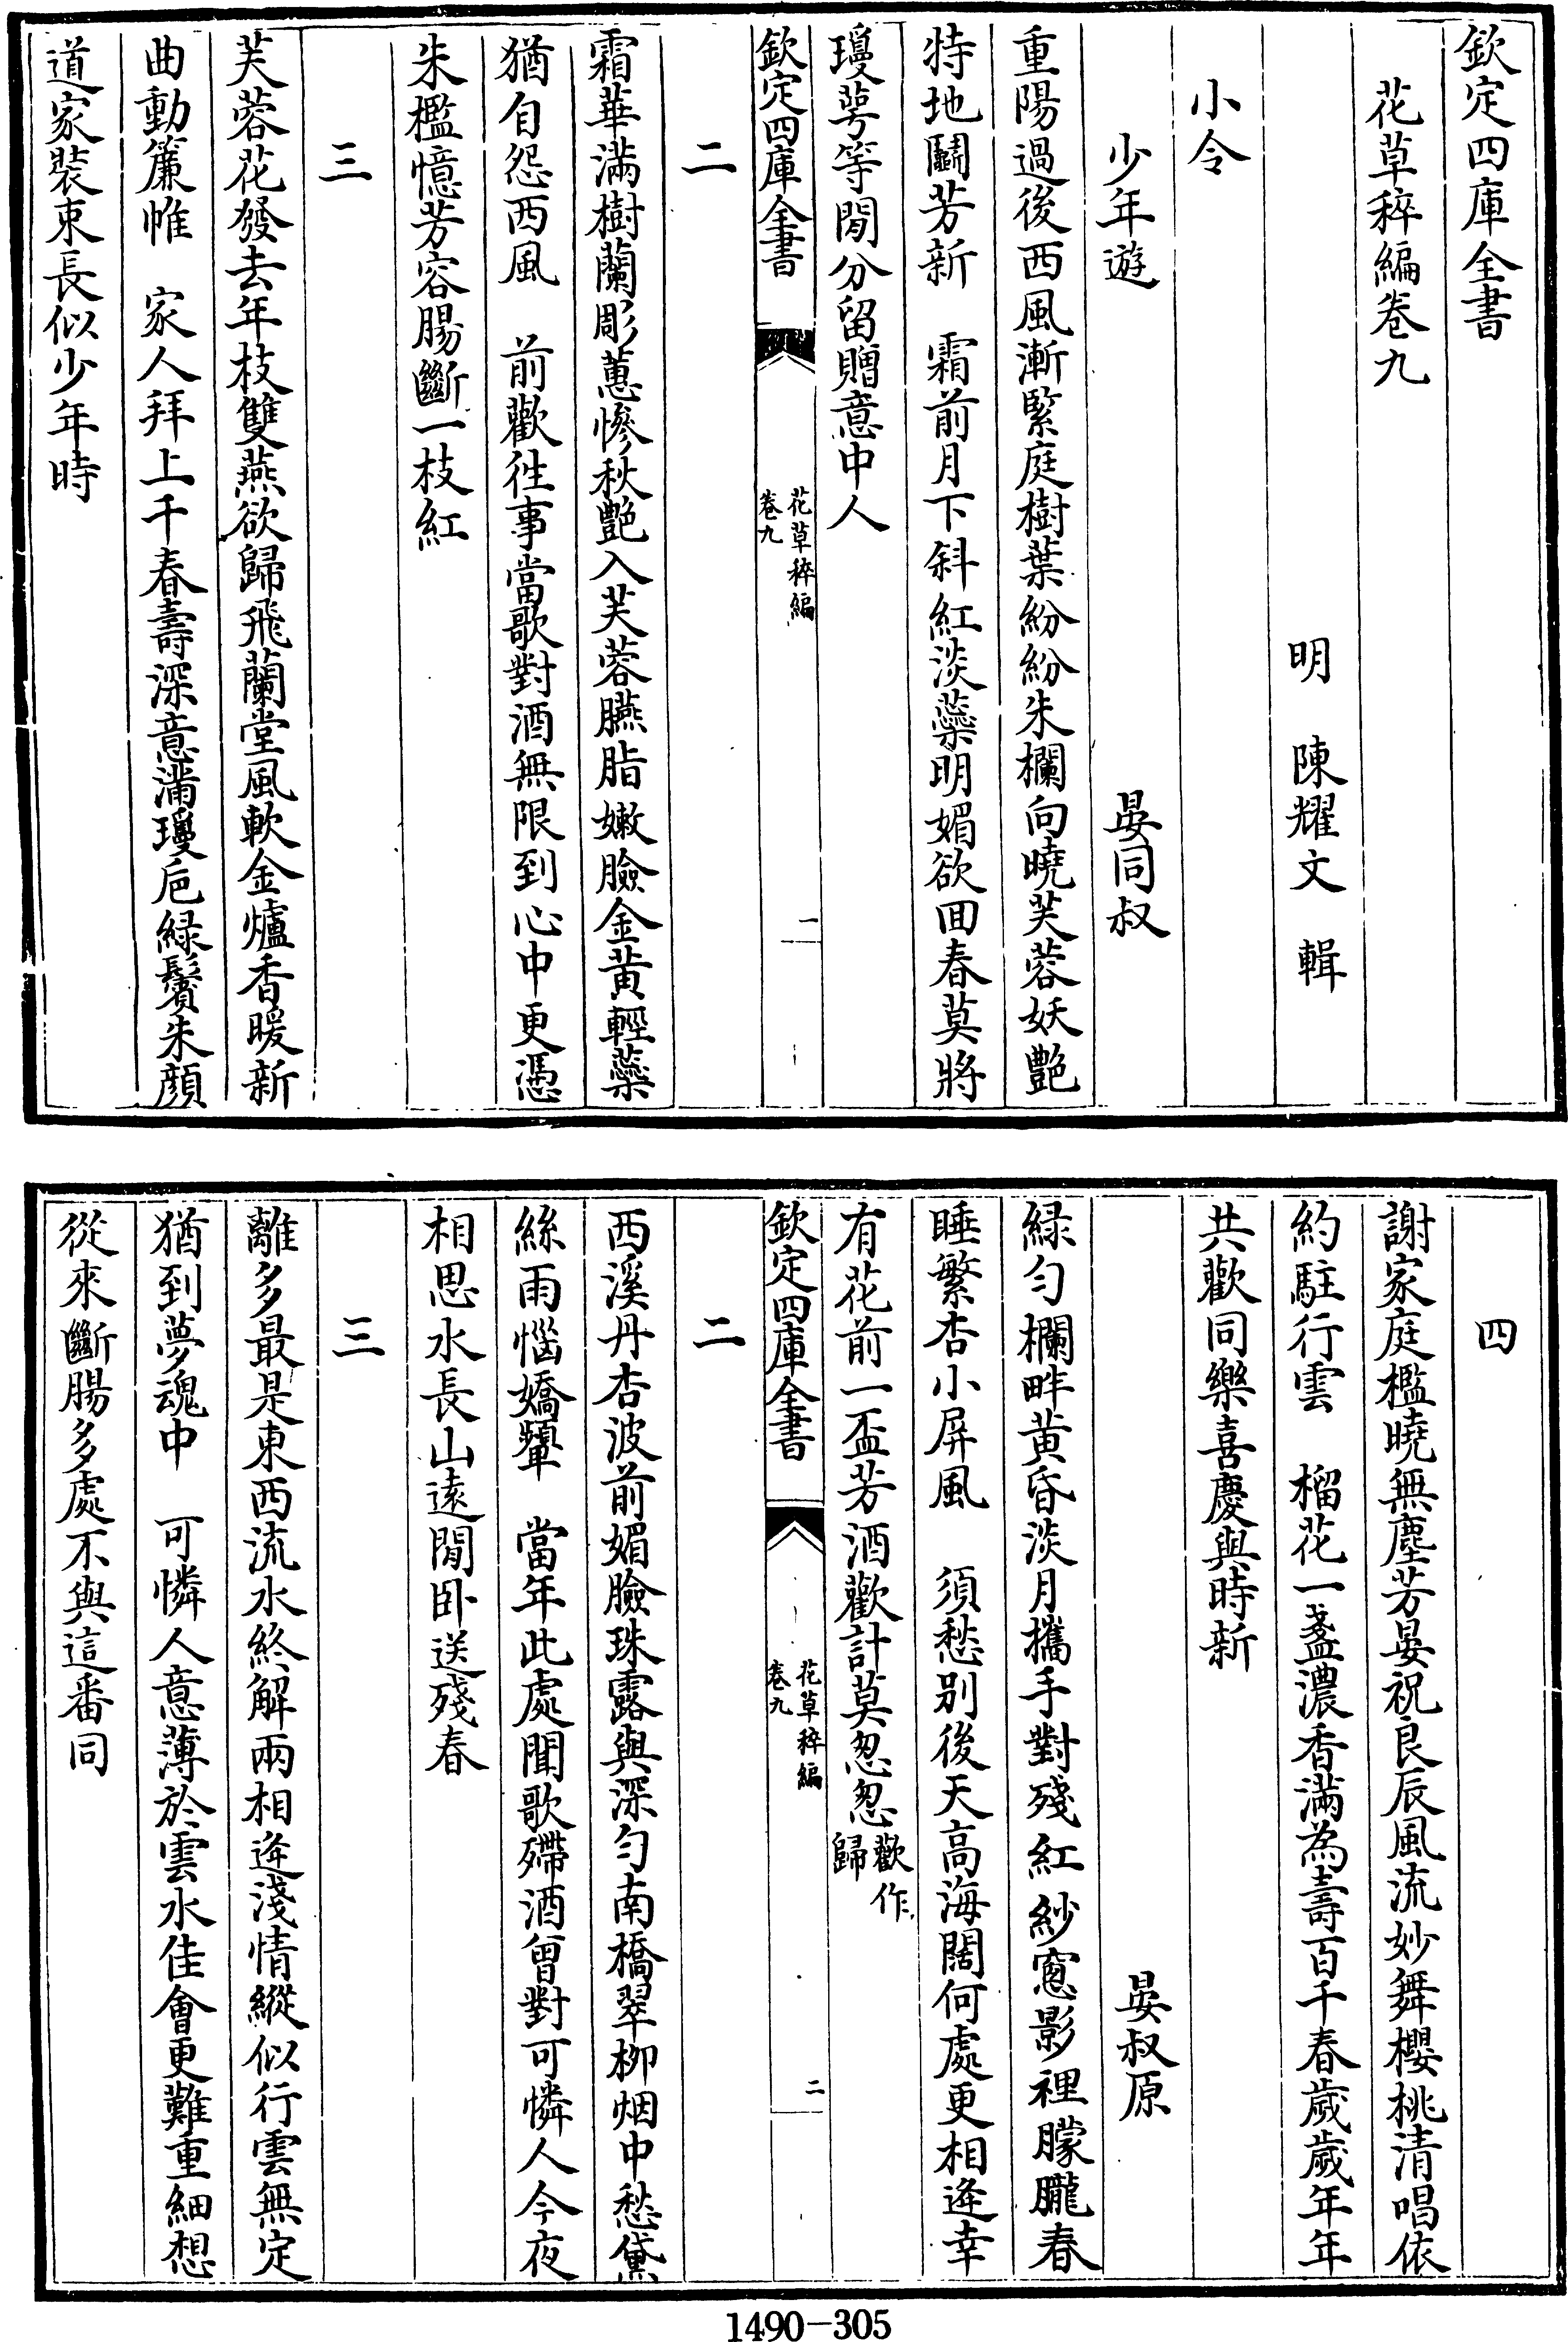 欽定四庫全書
花草稡編卷九
明　陳耀文　輯
小令
少年遊　晏同叔
重陽過後西風漸緊庭樹葉紛紛朱欄向曉芙蓉妖艷
特地鬭芳新　霜前月下斜紅淡蘂明媚欲回春莫將
瓊萼等閒分留贈意中人
欽定四庫全書
花草稡編
卷九
一
二
霜華滿樹蘭彫蕙慘秋艷入芙蓉臙脂嫩臉金黃輕蘂
猶自怨西風　前歡徃事當歌對酒無限到心中更憑
朱檻憶芳容腸斷一枝紅
三
芙蓉花發去年枝雙燕欲歸飛蘭堂風軟金爐香暖新
曲動簾帷　家人拜上千春壽深意滿瓊巵緑鬢朱顔
道家裝束長似少年時
四
謝家庭檻曉無塵芳晏祝良辰風流妙舞櫻桃清唱依
約駐行雲　榴花一盞濃香滿為壽百千春歲歲年年
共歡同樂喜慶與時新
晏叔原
緑勻欄畔黄昏淡月攜手對殘紅紗窻影裡朦朧春
睡繁杏小屏風　須愁别後天高海闊何處更相逢幸
有花前一盃芳酒歡計莫怱怱歡作歸
欽定四庫全書
花草稡編
卷九
二
二
西溪丹杏波前媚臉珠露與深勻南橋翠柳烟中愁黛
絲雨惱嬌顰　當年此處聞歌殢酒曾對可憐人今夜
相思水長山遠閒卧送殘春
三
離多最是東西流水終解兩相逢淺情縱似行雲無定
猶到夢魂中　可憐人意薄於雲水佳會更難重細想
從來斷腸多處不與這番同
1490-305